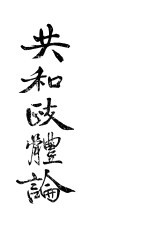 共和政體論